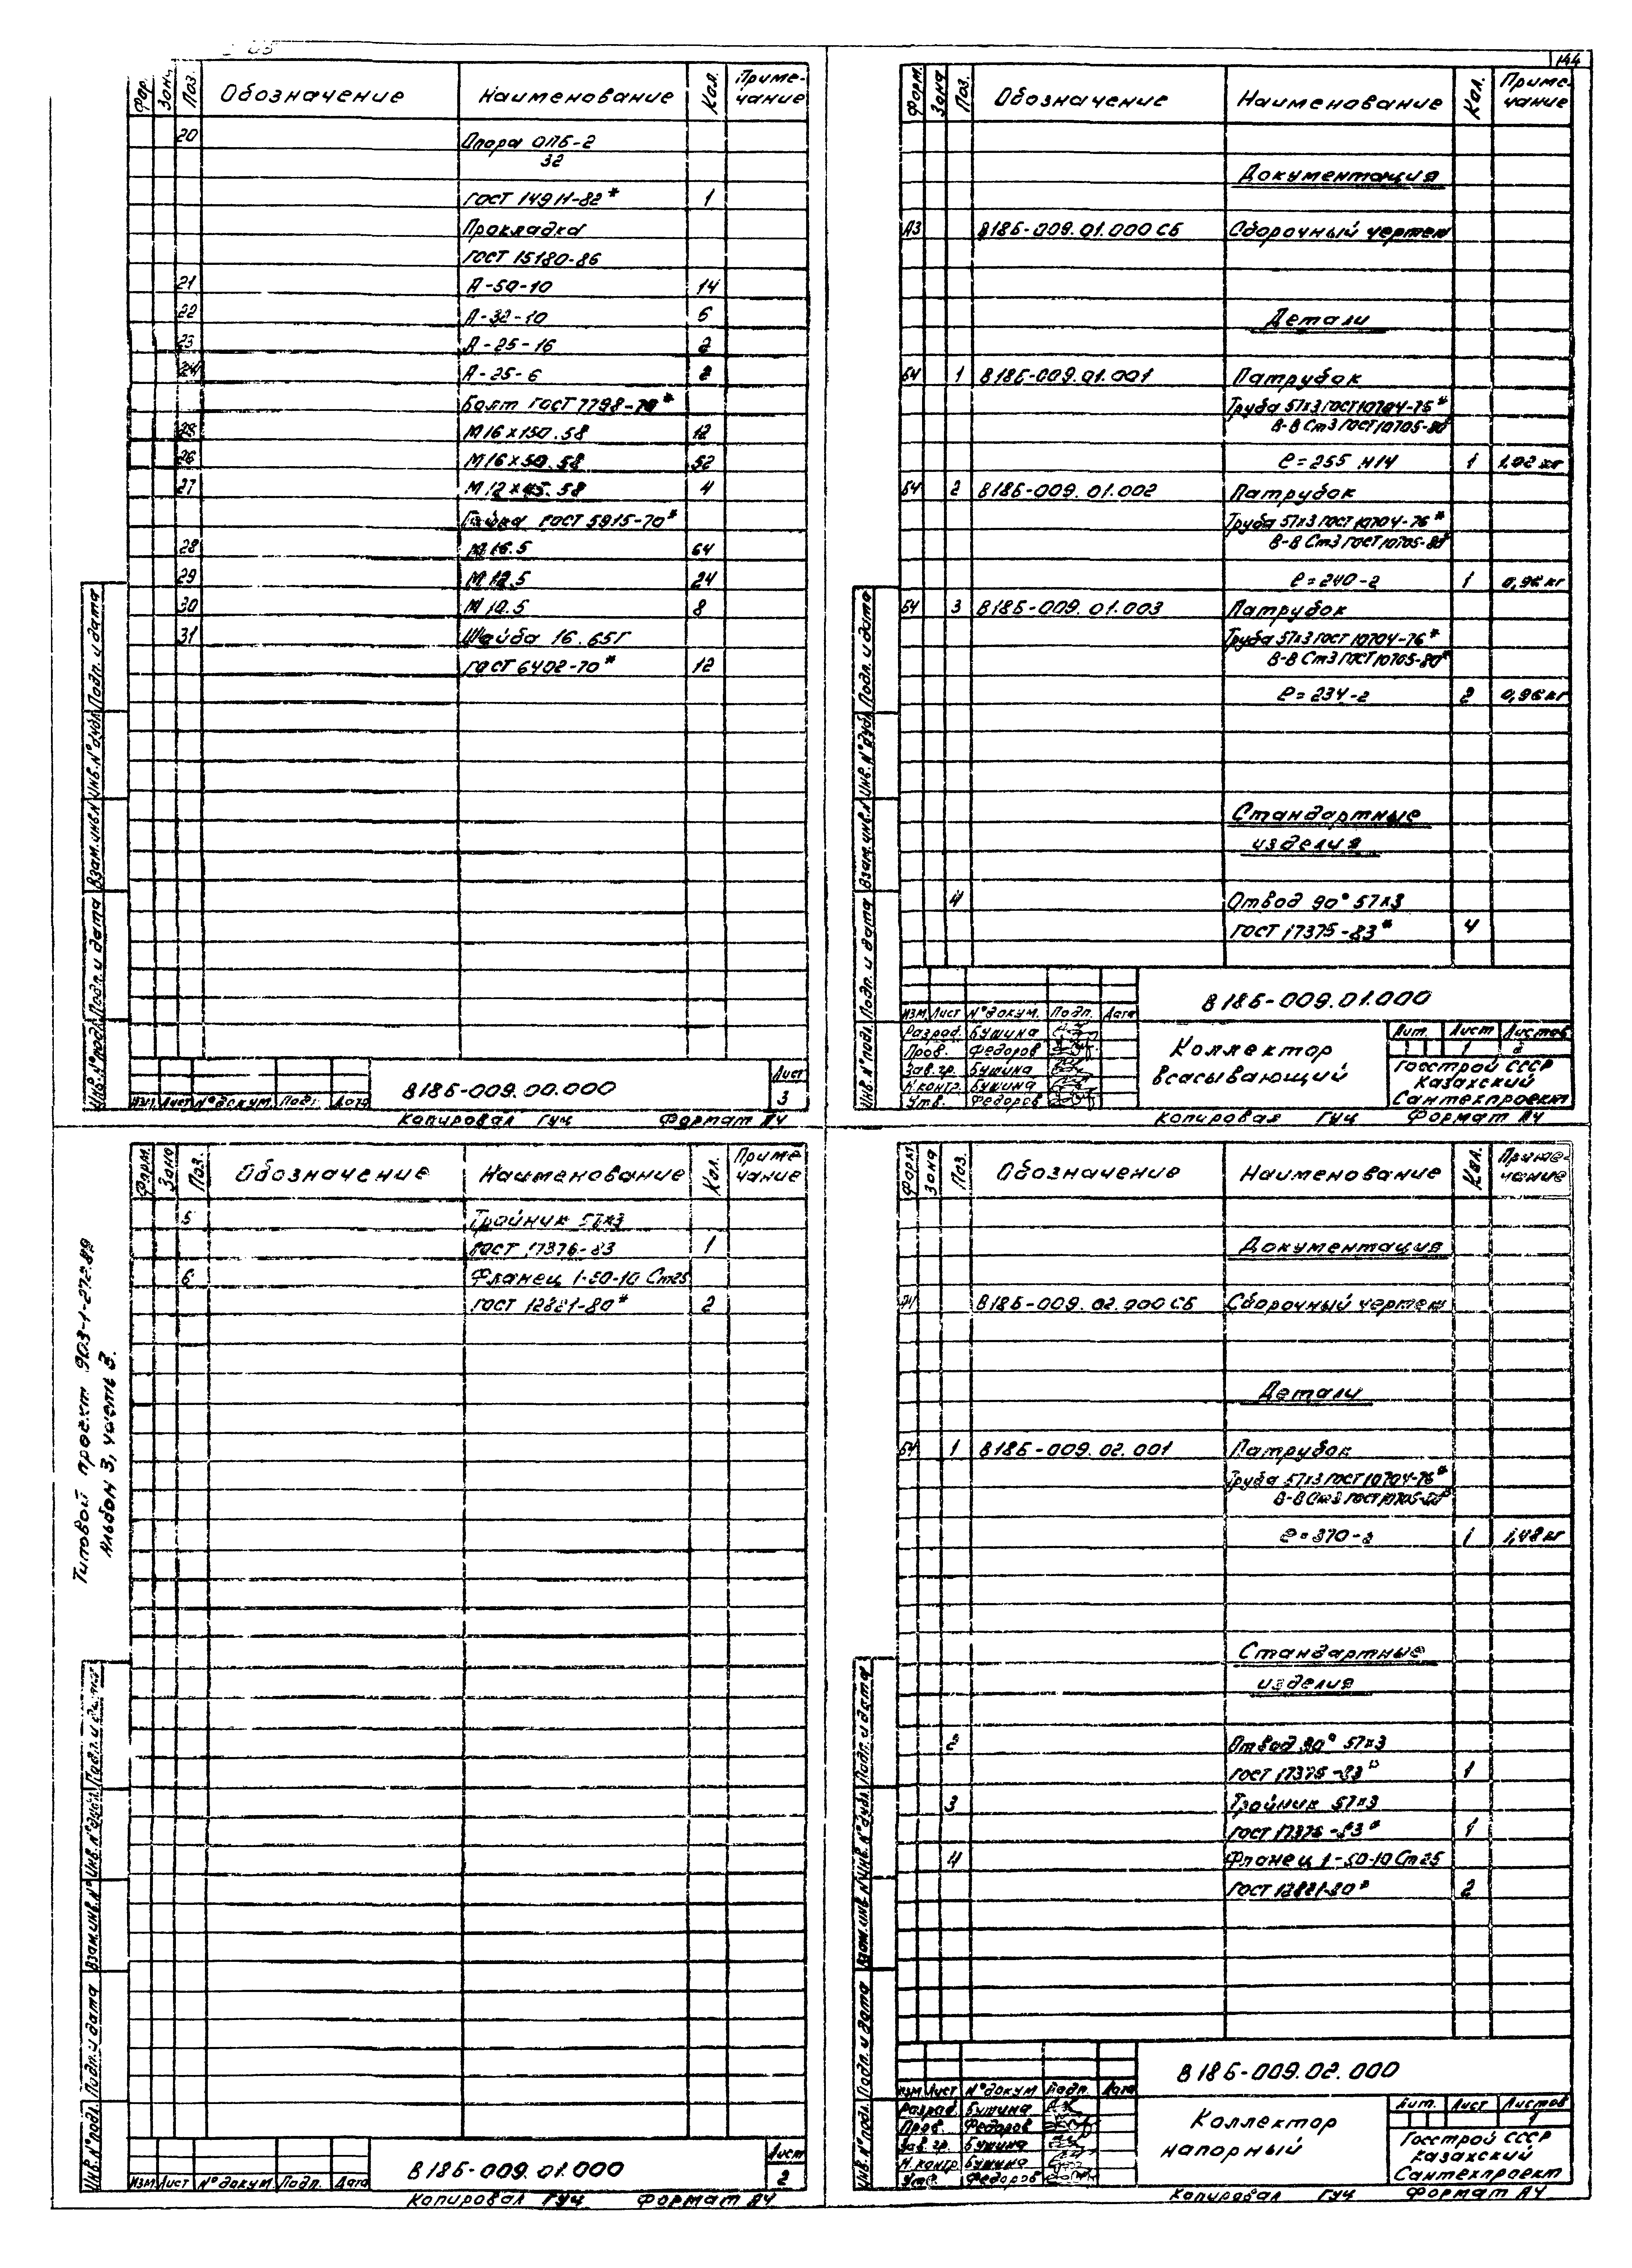 144
Фор. Зона Поз. Обозначение Наименование Кол. Приме-
чание
20 Опора ОПБ-2
32
ГОСТ 14911-82* 1
Прокладка
ГОСТ 15180-86
21 А-50-10 14
22 А-32-10 6
23 А-25-16 2
24 А-25-6 2
Болт ГОСТ 7798-70*
М16×150.58 12
26 М16×50.58 52
27 М12×45.58 4
Гайка ГОСТ 5915-70*
28 М16.5 64
29 М12.5 24
30 М10.5 8
31 Шайба 16.65Г
ГОСТ 6402-70* 12
Инв.№подл. Подп. и дата Взам.инв.№ Инв.№дубл. Подп. и дата
Изм. Лист №докум. Подп. Дата
В18Б-009.00.000
Лист
3
Копировал ГУЦ Формат А4
Форм. Зона Поз. Обозначение Наименование Кол. Приме-
чание
Документация
А3 В18Б-009.01.000 СБ Сборочный чертеж
Детали
Б4 1 В18Б-009.01.001 Патрубок
Труба 57×3 ГОСТ 10704-76*
В-В Ст3 ГОСТ 10705-80*
ℓ=255 н14 1 1,02 кг
Б4 2 В18Б-009.01.002 Патрубок
Труба 57×3 ГОСТ 10704-76*
В-В Ст3 ГОСТ 10705-80*
ℓ=240-2 1 0,96 кг
Б4 3 В18Б-009.01.003 Патрубок
Труба 57×3 ГОСТ 10704-76*
В-В Ст3 ГОСТ 10705-80*
ℓ=234-2 2 0,96 кг
Стандартные
изделия
4 Отвод 90° 57×3
ГОСТ 17375-83* 4
Инв.№подл. Подп. и дата Взам.инв.№ Инв.№дубл. Подп. и дата
В18Б-009.01.000
Изм. Лист №докум. Подп. Дата
Разраб. Бушина
Пров. Федоров
Зав.гр. Бушина
Н.контр. Бушина
Утв. Федоров
Коллектор
всасывающий
Лит. Лист Листов
1 2
Госстрой СССР
Казахский
Сантехпроект
Копировал ГУЦ Формат А4
Типовой проект 903-1-272.89
Альбом 3, часть 3.
Форм. Зона Поз. Обозначение Наименование Кол. Приме
чание
5 Тройник 57×3
ГОСТ 17376-83 1
6 Фланец 1-50-10 Ст25
ГОСТ 12821-80* 2
Инв.№подл. Подп. и дата Взам.инв.№ Инв.№дубл. Подп. и дата
Изм. Лист №докум. Подп. Дата
В18Б-009.01.000
Лист
2
Копировал ГУЦ Формат А4
Форм. Зона Поз. Обозначение Наименование Кол. Приме-
чание
Документация
А4 В18Б-009.02.000 СБ Сборочный чертеж
Детали
Б4 1 В18Б-009.02.001 Патрубок
Труба 57×3 ГОСТ 10704-76*
В-В Ст3 ГОСТ 10705-80*
ℓ=370-2 1 1,48 кг
Стандартные
изделия
2 Отвод 90° 57×3
ГОСТ 17375-83* 1
3 Тройник 57×3
ГОСТ 17376-83* 1
4 Фланец 1-50-10 Ст25
ГОСТ 12821-80* 2
Инв.№подл. Подп. и дата Взам.инв.№ Инв.№дубл. Подп. и дата
В18Б-009.02.000
Изм. Лист №докум Подп. Дата
Разраб. Бушина
Пров. Федоров
Зав.гр. Бушина
Н.контр. Бушина
Утв. Федоров
Коллектор
напорный
Лит. Лист Листов
1
Госстрой СССР
Казахский
Сантехпроект
Копировал ГУЦ Формат А4